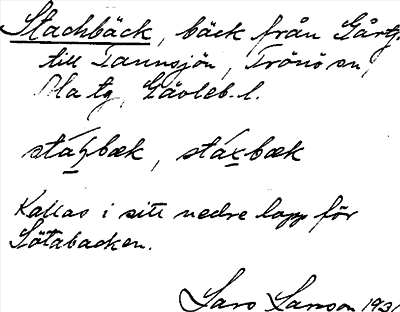 Stachbäck, bäck från Gårtj.
till Tannsjön, Trönö sn,
Ala tg, Gävleb. l.
stáꜧbæk, stáxbæk
Kallas i sitt nedre lopp för
Lötabacken.
Lars Larsson 1931